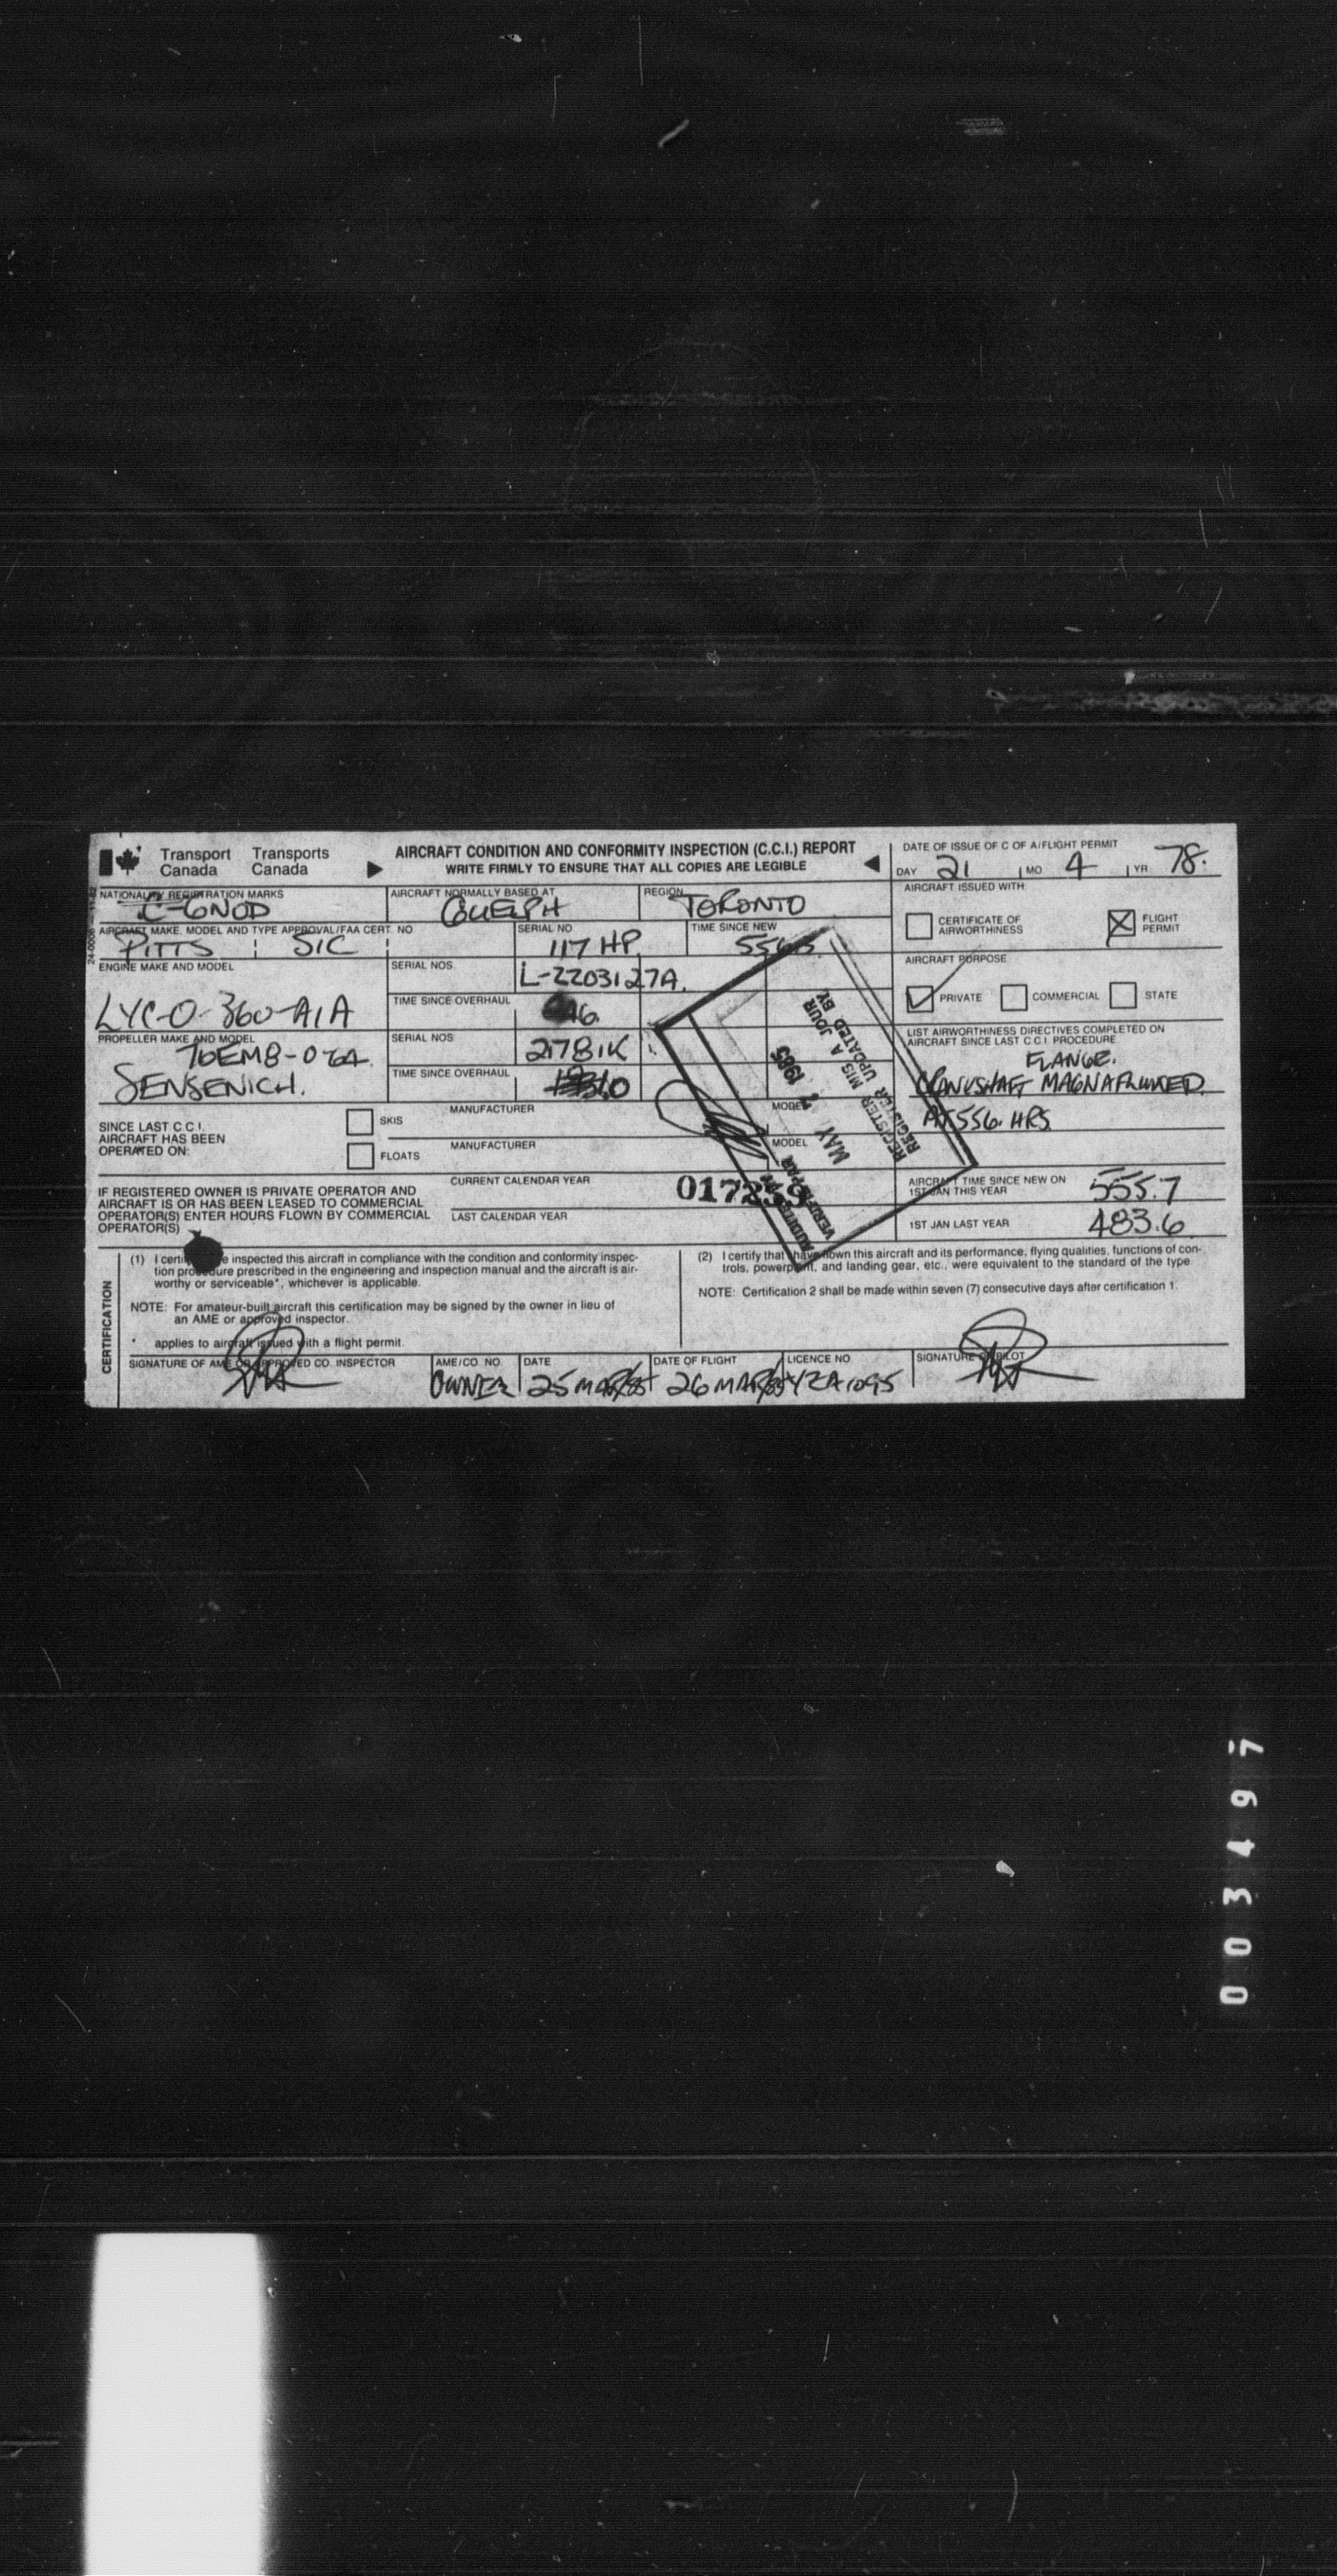 Transport Canada Transports Canada
AIRCRAFT CONDITION AND CONFORMITY INSPECTION (C.C.I.) REPORT
WRITE FIRMLY TO ENSURE THAT ALL COPIES ARE LEGIBLE
DATE OF ISSUE OF C OF A/FLIGHT PERMIT
DAY 21 MO 4 YR 78.
NATIONALITY REGISTRATION MARKS
C-GNOD
AIRCRAFT NORMALLY BASED AT
GUELPH
REGION
TORONTO
AIRCRAFT ISSUED WITH
CERTIFICATE OF AIRWORTHINESS
FLIGHT PERMIT
AIRCRAFT MAKE, MODEL AND TYPE APPROVAL/FAA CERT. NO
PITTS S1C
SERIAL NO
117 HP
TIME SINCE NEW
AIRCRAFT PURPOSE
PRIVATE COMMERCIAL STATE
ENGINE MAKE AND MODEL
LYC-O-360-A1A
SERIAL NOS
L-2203127A.
TIME SINCE OVERHAUL
PROPELLER MAKE AND MODEL
SENSENICH.
SERIAL NOS
2781K
TIME SINCE OVERHAUL
LIST AIRWORTHINESS DIRECTIVES COMPLETED ON
AIRCRAFT SINCE LAST C.C.I. PROCEDURE
FLANGE.
CRANKSHAFT MAGNAFLUXED
AT 556. HRS.
SINCE LAST C.C.I.
AIRCRAFT HAS BEEN
OPERATED ON:
SKIS
FLOATS
MANUFACTURER
MODEL
MANUFACTURER
MODEL
IF REGISTERED OWNER IS PRIVATE OPERATOR AND
AIRCRAFT IS OR HAS BEEN LEASED TO COMMERCIAL
OPERATOR(S) ENTER HOURS FLOWN BY COMMERCIAL
OPERATOR(S)
CURRENT CALENDAR YEAR
LAST CALENDAR YEAR
AIRCRAFT TIME SINCE NEW ON
1ST JAN THIS YEAR
555.7
1ST JAN LAST YEAR
483.6
REGISTER MIS A JOUR
REGISTER UPDATED BY
MAY 1985
VERIFIE PAR
CERTIFICATION
(1) I certify inspected this aircraft in compliance with the condition and conformity inspec-
tion procedure prescribed in the engineering and inspection manual and the aircraft is air-
worthy or serviceable*, whichever is applicable.
NOTE: For amateur-built aircraft this certification may be signed by the owner in lieu of
an AME or approved inspector.
* applies to aircraft issued with a flight permit.
(2) I certify that I have flown this aircraft and its performance, flying qualities, functions of con-
trols, powerplant, and landing gear, etc., were equivalent to the standard of the type
NOTE: Certification 2 shall be made within seven (7) consecutive days after certification 1.
SIGNATURE OF AME OR APPROVED CO. INSPECTOR
AME/CO. NO.
OWNER
DATE
25 MAR/85
DATE OF FLIGHT
26 MAR/85
LICENCE NO
YZA1095
SIGNATURE OF PILOT
003497